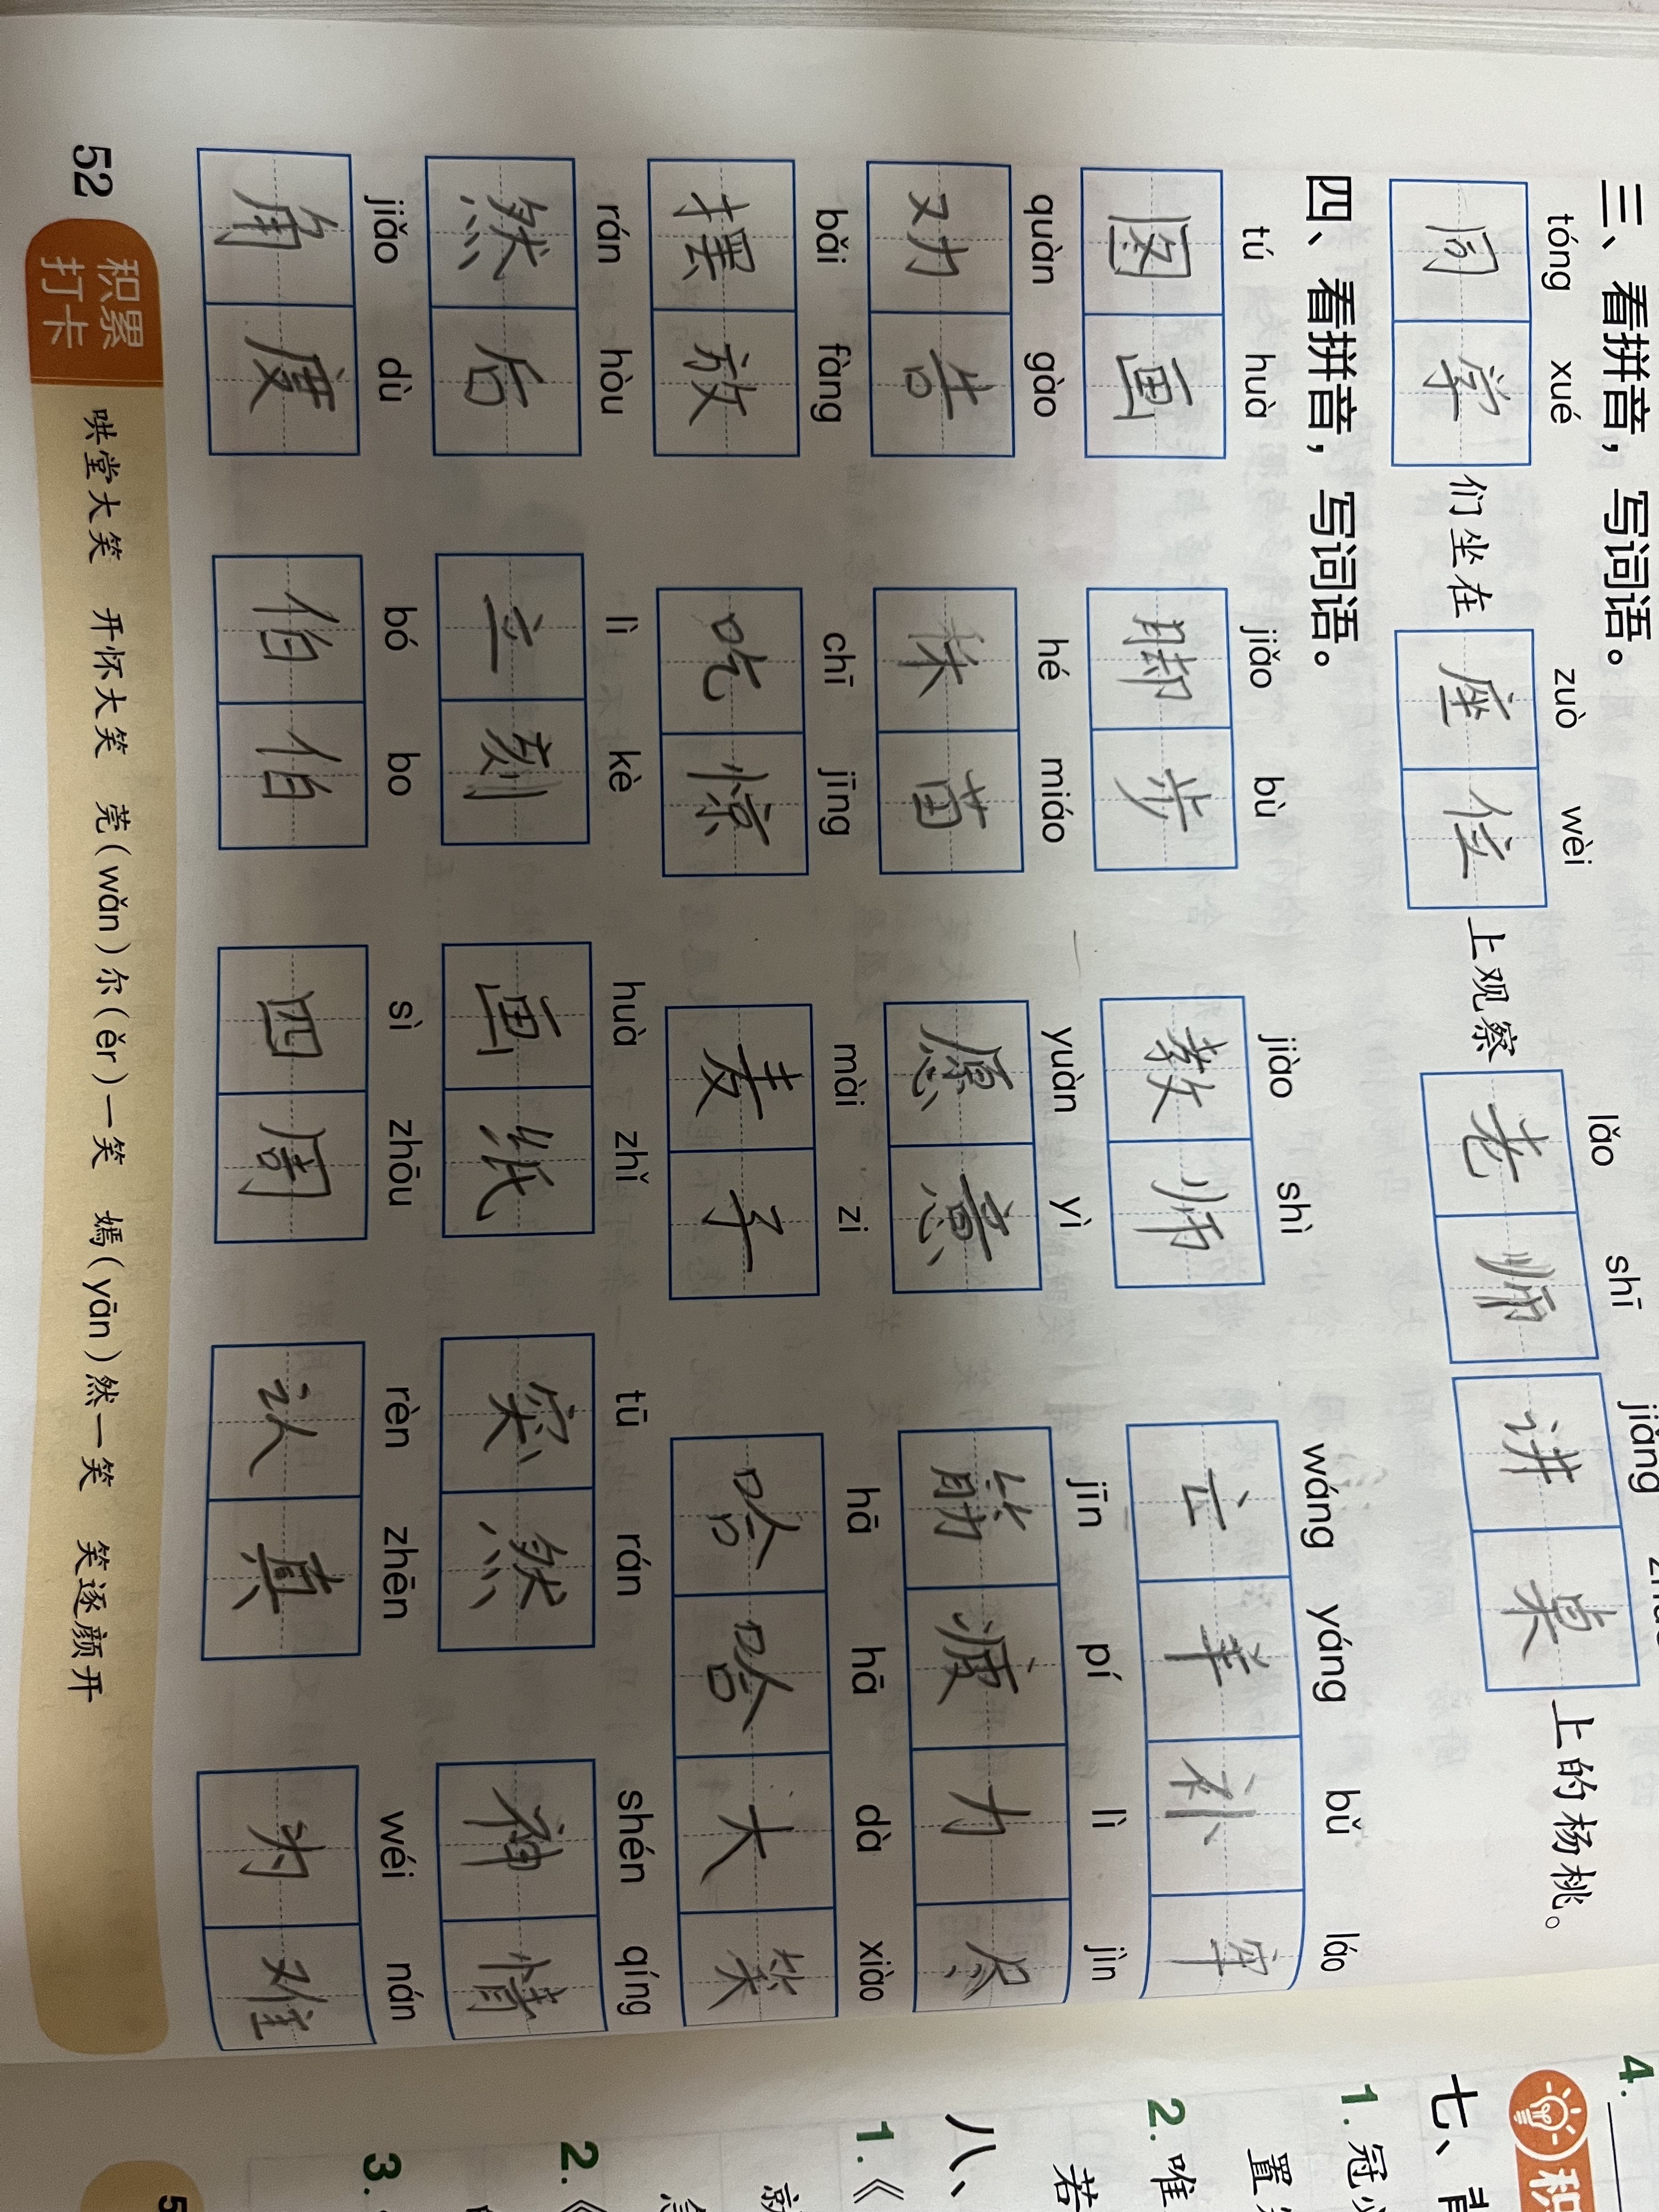 三、看拼音，写词语。
tóng xué zuò wèi lǎo shī jiǎng
同学们坐在座位上观察老师讲桌上的杨桃。
四、看拼音，写词语。
tú huà jiǎo bù jiào shì wáng yáng bǔ láo
图画 脚步 教师 亡羊补牢
quàn gào hé miáo yuàn yì jīn pí lì jìn
劝告 禾苗 愿意 筋疲力尽
bǎi fàng chī jīng mài zi hā hā dà xiào
摆放 吃惊 麦子 哈哈大笑
rán hòu lì kè huà zhǐ tū rán shén qíng
然后 立刻 画纸 突然 神情
jiǎo dù bó bo sì zhōu rèn zhēn wéi nán
角度 伯伯 四周 认真 为难
52 积累打卡 哄堂大笑 开怀大笑 莞(wǎn)尔(ěr)一笑 嫣(yān)然一笑 笑逐颜开
4.
积
七、
1.冠
置
2.唯
八、
若
1.《
就
2.《
3.
5